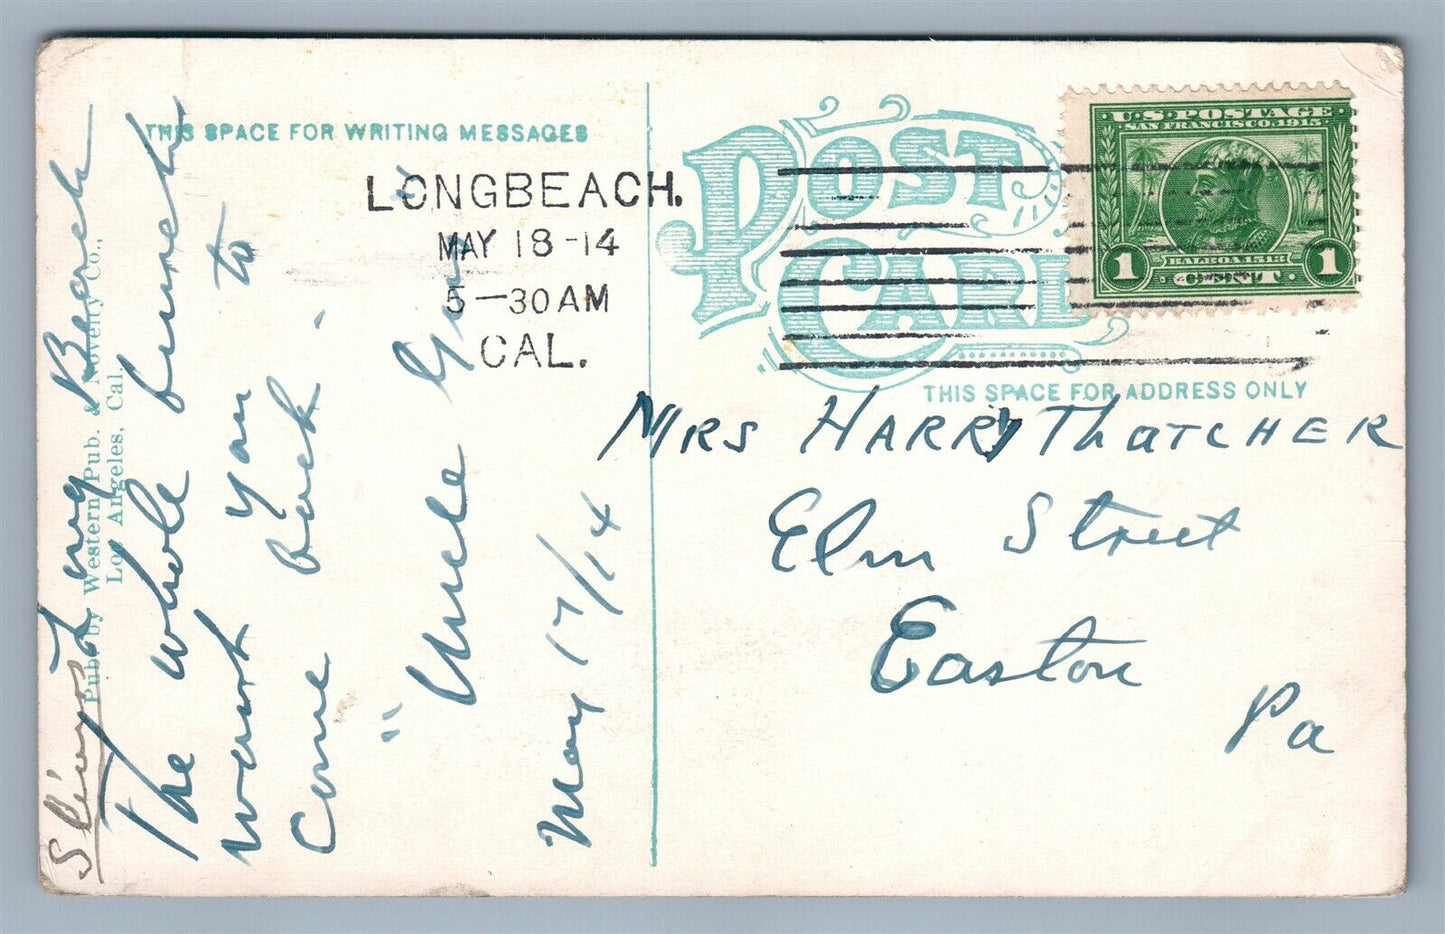 THIS SPACE FOR WRITING MESSAGES
POST CARD
LONGBEACH.
MAY 18-14
5-30AM
CAL.
U.S. POSTAGE
SAN FRANCISCO 1915
BALBOA 1513
1 CENT 1
THIS SPACE FOR ADDRESS ONLY
Pub. by Western Pub. & Novelty Co.,
Los Angeles, Cal.
Long Beach
The whole bunch
want you to
come back.
"Uncle
May 17/14
Mrs Harry Thatcher
Elm Street
Easton
Pa